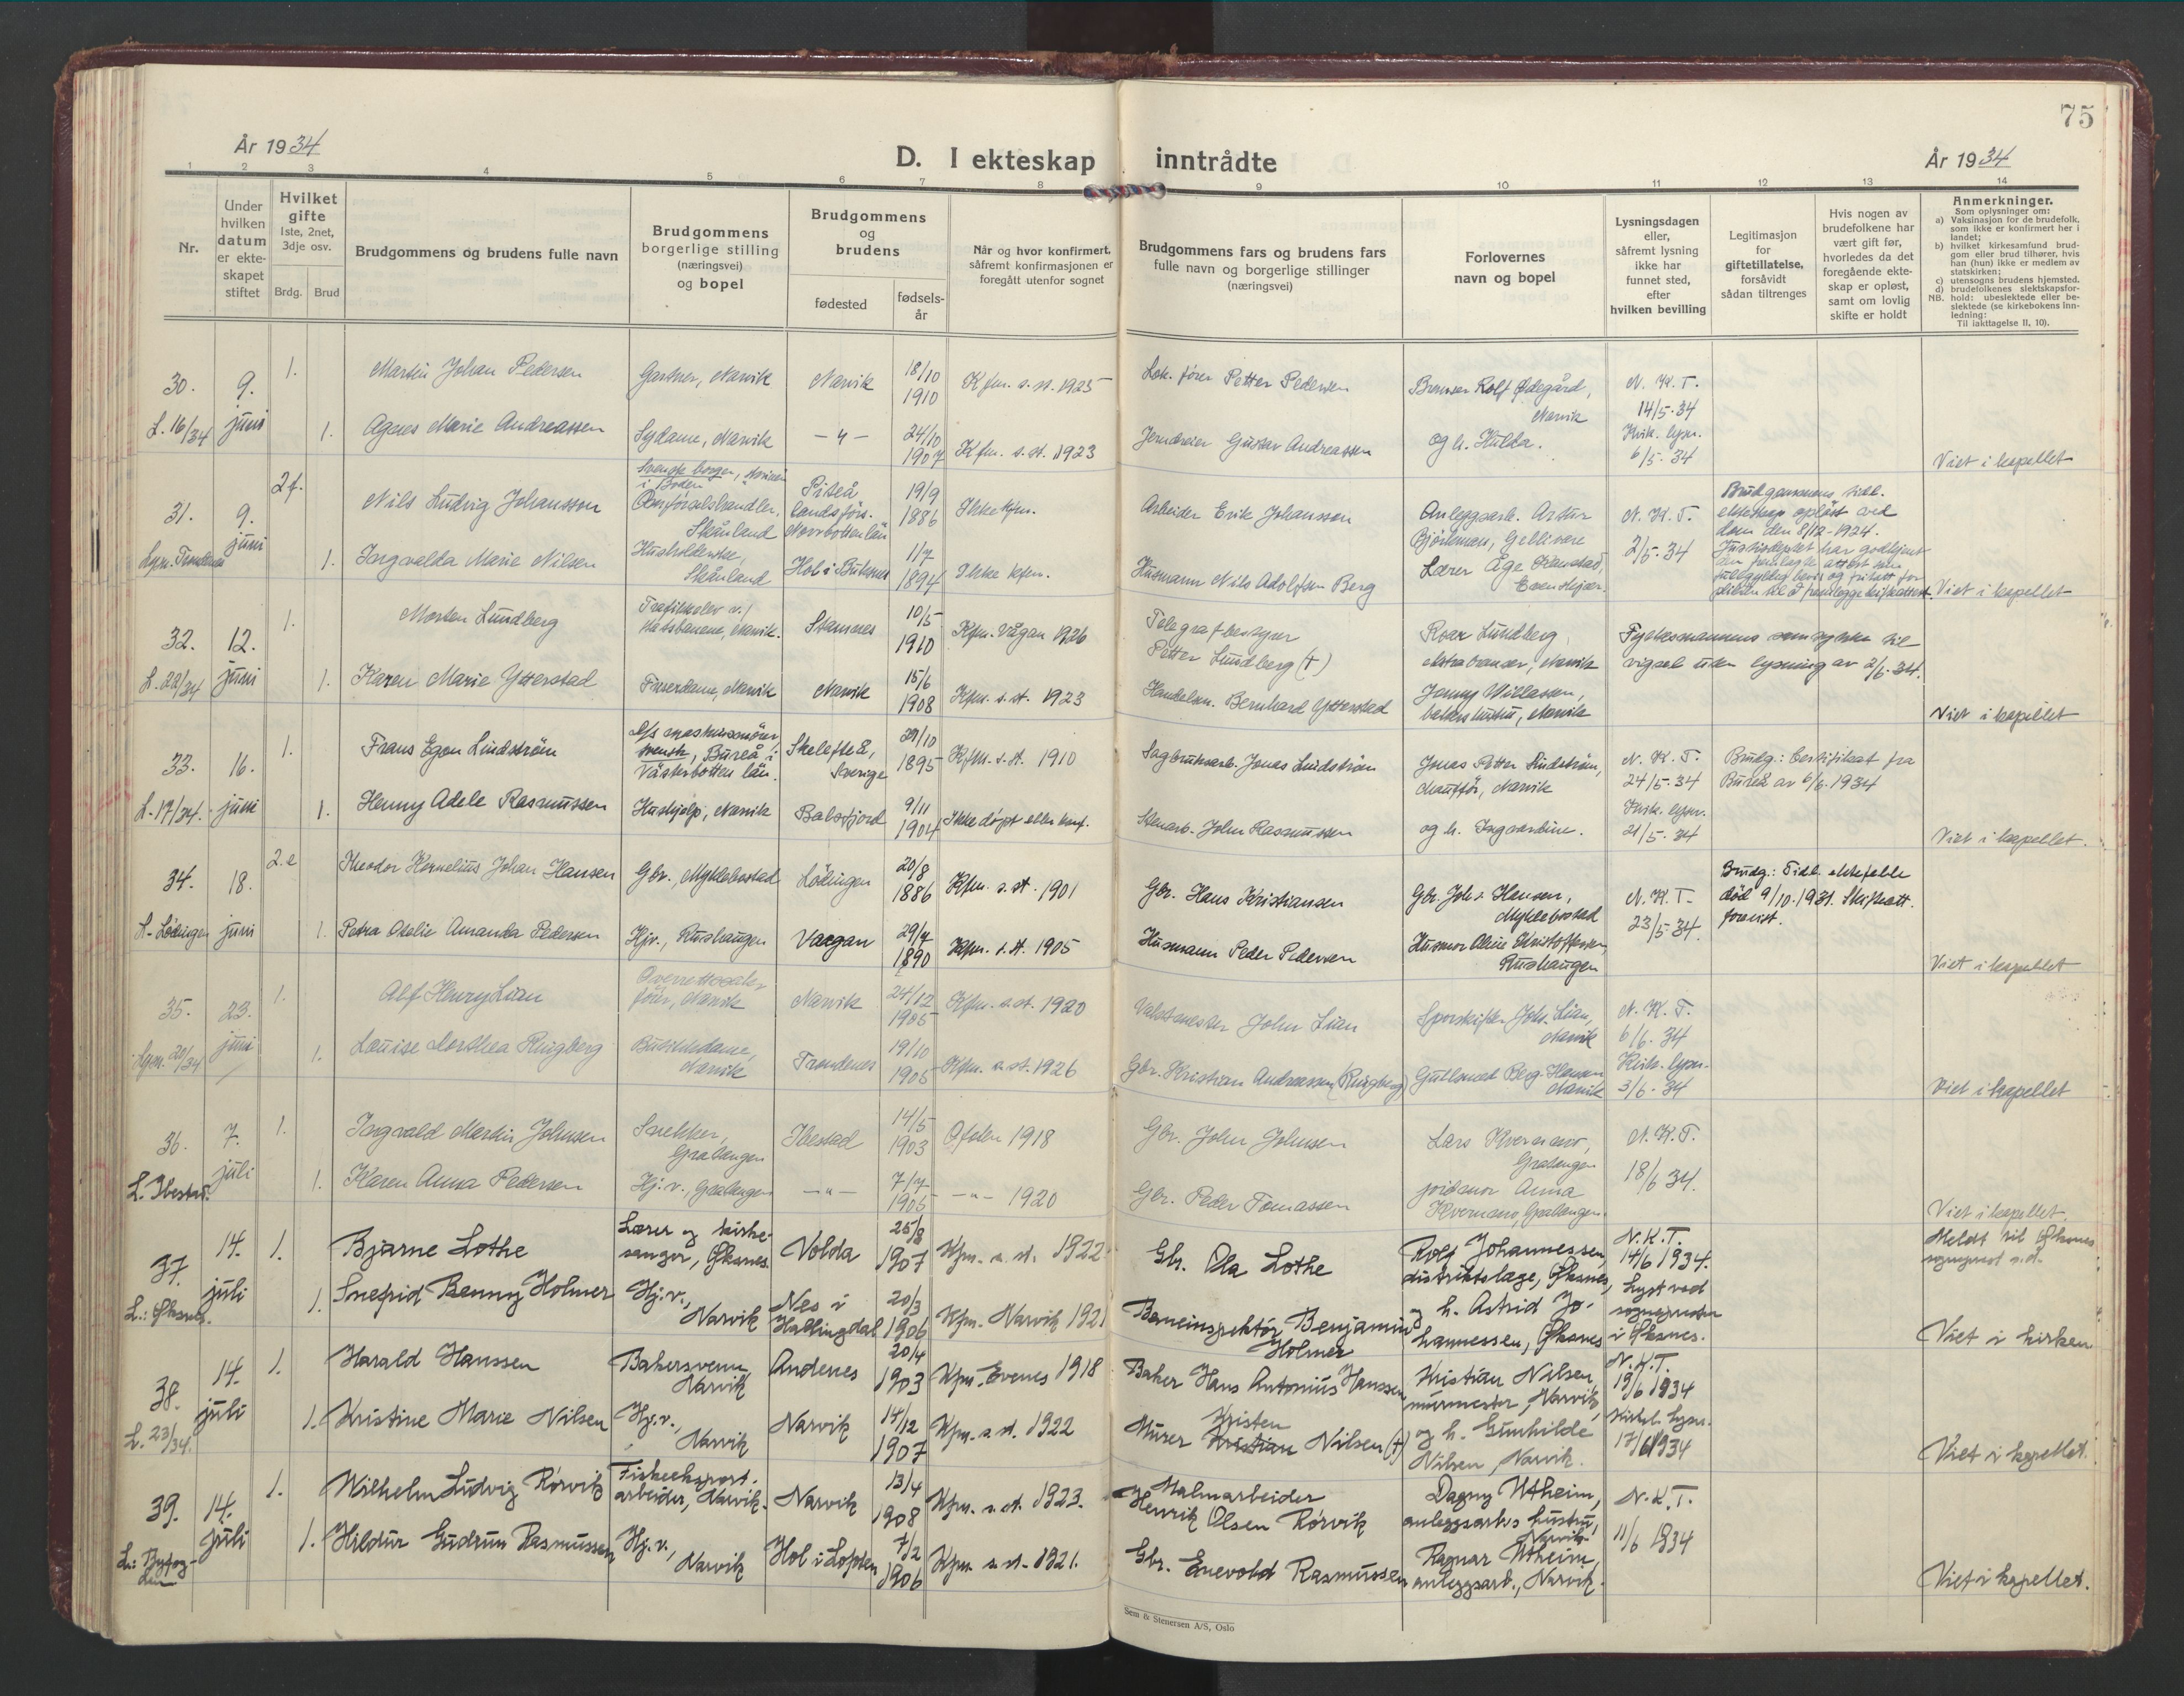 75
År 1934
D. I ekteskap inntrådte
År 1934
1 2 3 4 5 6 7 8 9 10 11 12 13 14
Nr.
Under hvilken datum er ekteskapet stiftet
Hvilket gifte 1ste, 2net, 3dje osv.
Brdg. Brud
Brudgommens og brudens fulle navn
Brudgommens borgerlige stilling (næringsvei) og bopel
Brudgommens og brudens
fødested
fødselsår
Når og hvor konfirmert, såfremt konfirmasjonen er foregått utenfor sognet
Brudgommens fars og brudens fars fulle navn og borgerlige stillinger (næringsvei)
Forlovernes navn og bopel
Lysningsdagen eller, såfremt lysning ikke har funnet sted, efter hvilken bevilling
Legitimasjon for giftetillatelse, forsåvidt sådan tiltrenges
Hvis nogen av brudefolkene har vært gift før, hvorledes da det foregående ekteskap er opløst, samt om lovlig skifte er holdt
Anmerkninger.
Som oplysninger om:
a) Vaksinasjon for de brudefolk, som ikke er konfirmert her i landet;
b) hvilket kirkesamfund brudgom eller brud tilhører, hvis han (hun) ikke er medlem av statskirken;
c) utensogns brudens hjemsted.
d) brudefolkenes slektskapsforhold: ubeslektede eller beslektede (se kirkebokens innledning:
NB. Til iakttagelse II, 10).
30. 9. juni 1. Martin Johan Pedersen Gartner, Narvik Narvik 18/10 1910 Kfm. s. st. 1925 Lok. fører Petter Pedersen Bremser Rolf Ødegård, Narvik N. K. T. 14/5-34
L. 16/34 1. Agnes Marie Andreassen Sydame, Narvik -"- 24/10 1907 Kfm. s. st. 1923 Gustav Andreassen og h. Hulda. Kirk. lysn. 6/5-34 Viet i kapellet
31. 9. juni 2 f. Nils Ludvig Johansson Svensk borger, i Boden Skånland Piteå landsförs. Norrbottenlän 19/9 1886 Ikke kfm. Arbeider Erik Johansson Anleggsarb. Artur Björkman, Gellivare N. K. T. 2/5-34 Brudgommens tidl. ekteskap opløst ved dom den 8/12-1924.
Justisdeptet har godkjent den fremlagte attest som fullgyldig bevis og fritatt for plikten til å fremlegge skifteattest.
1. Ingvalda Marie Nilsen Husholderske, Skånland Hol i Buksnes 1/7 1894 Ikke kfm. Husmann Nils Adolfsen Berg Lærer Åge Evenskjær. Viet i kapellet
32. 12. juni 1. Morten Lundberg Trafikkelev v/ statsbanene, Narvik. Stamnes 10/5 1910 Kfm. Vågan 1926 Telegrafbestyrer Petter Lundberg (†) Roar Lundberg, ekstrabremser, Narvik Fylkesmannens samtykke til vigsel uten lysning av 2/6-34.
L. 22/34 1. Karen Marie Ytterstad Frisørdame, Narvik Narvik 15/6 1908 Kfm. s. st. 1923 Handelsm. Bernhard Ytterstad Jenny Willassen, bakers hustru, Narvik Viet i kapellet
33. 16. juni 1. Frans Egon Lindström svensk, Bureå i Västerbotten län. Skelefteå, Sverige 29/10 1895 Kfm. s. st. 1910 Sagbruksarb. Jonas Lindström Jonas Petter Lindström, chauffør, Narvik N. K. T. 24/5-34 Brudg.: Certifikat fra Bureå av 6/6-1934
L. 17/34. 1. Henny Adele Rasmussen Hushjelp, Narvik Balsfjord 9/11 1904 Ikke døpt eller konf. Stenarb. John Rasmussen og h. Ingvardine. Kirk. lysn. 21/5-34 Viet i kapellet.
34. 18. juni 2. e Theodor Kornelius Johan Hansen Gbr., Myklebostad Lødingen 20/8 1886 Kfm. s. st. 1901 Gbr. Hans Kristiansen Gbr. Joh. Hansen, Myklebostad N. K. T. 23/5-34. Brudg: Tidl. ektefelle død 9/10-1931. Skifteatt. forevist.
L. Lødingen 1. Petra Otelie Amanda Pedersen Hjv., Rushaugen Vaagan 29/7 1890 Kfm. s. st. 1905 Husmann Peder Pedersen Husmor Aline Kristoffersen, Rushaugen Viet i kapellet
35. 23. juni 1. Alf Henry Lian Overrettssakfører, Narvik Narvik 24/12 1905 Kfm. s. st. 1920 Vaktmester John Lian Sporskifter Joh. Lian, Narvik N. K. T. 6/6-34
Lysn. 20/34 1. Louise Dorthea Ringberg Butikkdame, Narvik Trondenes 19/10 1905 Kfm. s. st. 1926 Gbr. Kristian Andreassen (Ringberg) Gullsmed Berg-Hansen Narvik Kirk. lysn. 3/6-34 Viet i kapellet
36. 7. juli 1. Ingvald Martin Johnsen Snekker, Gratangen Ibestad 14/5 1903 Ofoten 1918 Gbr. John Johnsen Lars Kvernmo, Gratangen N. K. T. 18/6 34.
L. Ibestad. 1. Karen Anna Pedersen Hj. v., Gratangen -"- 7/7 1905 -"- 1920 Gbr. Peder Tomassen jordmor Anna Kvernmo, Gratangen. Viet i kapellet.
37. 14. juli 1. Bjarne Lothe Lærer og kirkesanger, Øksnes. Volda 25/8 1907 Kfm. s. st. 1922 Gbr. Ola Lothe Rolf Johannessen, distriktslæge, Øksnes, N. K. T. 14/6 1934. Meldt til Øksnes sogneprest s. d.
L.: Øksnes. 1. Snefrid Benny Holmer Hj. v., Narvik Nes i Hallingdal 20/3 1906 Kfm. Narvik 1921 Baneinspektør Benjamin Holmer og h. Astrid Johannessen, Øksnes Lyst ved sognepresten i Øksnes. Viet i kirken
38. 14. juli 1. Harald Hanssen Bakersvenn, Narvik Andenes 20/4 1903 Kfm. Evenes 1918 Baker Hans Antonius Hanssen Kristian Nilsen, murmester, Narvik, N. K. T. 19/6 1934
L. 23/34. 1. Kristine Marie Nilsen Hj. v., Narvik Narvik 14/12 1907 Kfm. s. st. 1922 Murer Kristen Nilsen (†) og h. Gunhilde Nilsen, Narvik. Kirkel. lysn. 17/6 1934 Viet i kapellet.
39. 14. juli 1. Wilhelm Ludvig Rørvik Fiskeeksportarbeider, Narvik. Narvik 13/4 1908 Kfm. s. st. 1923. Malmarbeider Henrik Olsen Rørvik Dagny Utheim, anleggsarbs hustru, Narvik N. K. T. 11/6 1934
L.: Byfogden 1. Hildur Gudrun Rasmussen Hj. v., Narvik Hol i Lofoten 7/2 1906 Kfm. s. st. 1921. Gbr. Enevold Rasmussen Ragnar Utheim, anleggsarb., Narvik. Viet i kapellet.
Sem & Stenersen A/S, Oslo